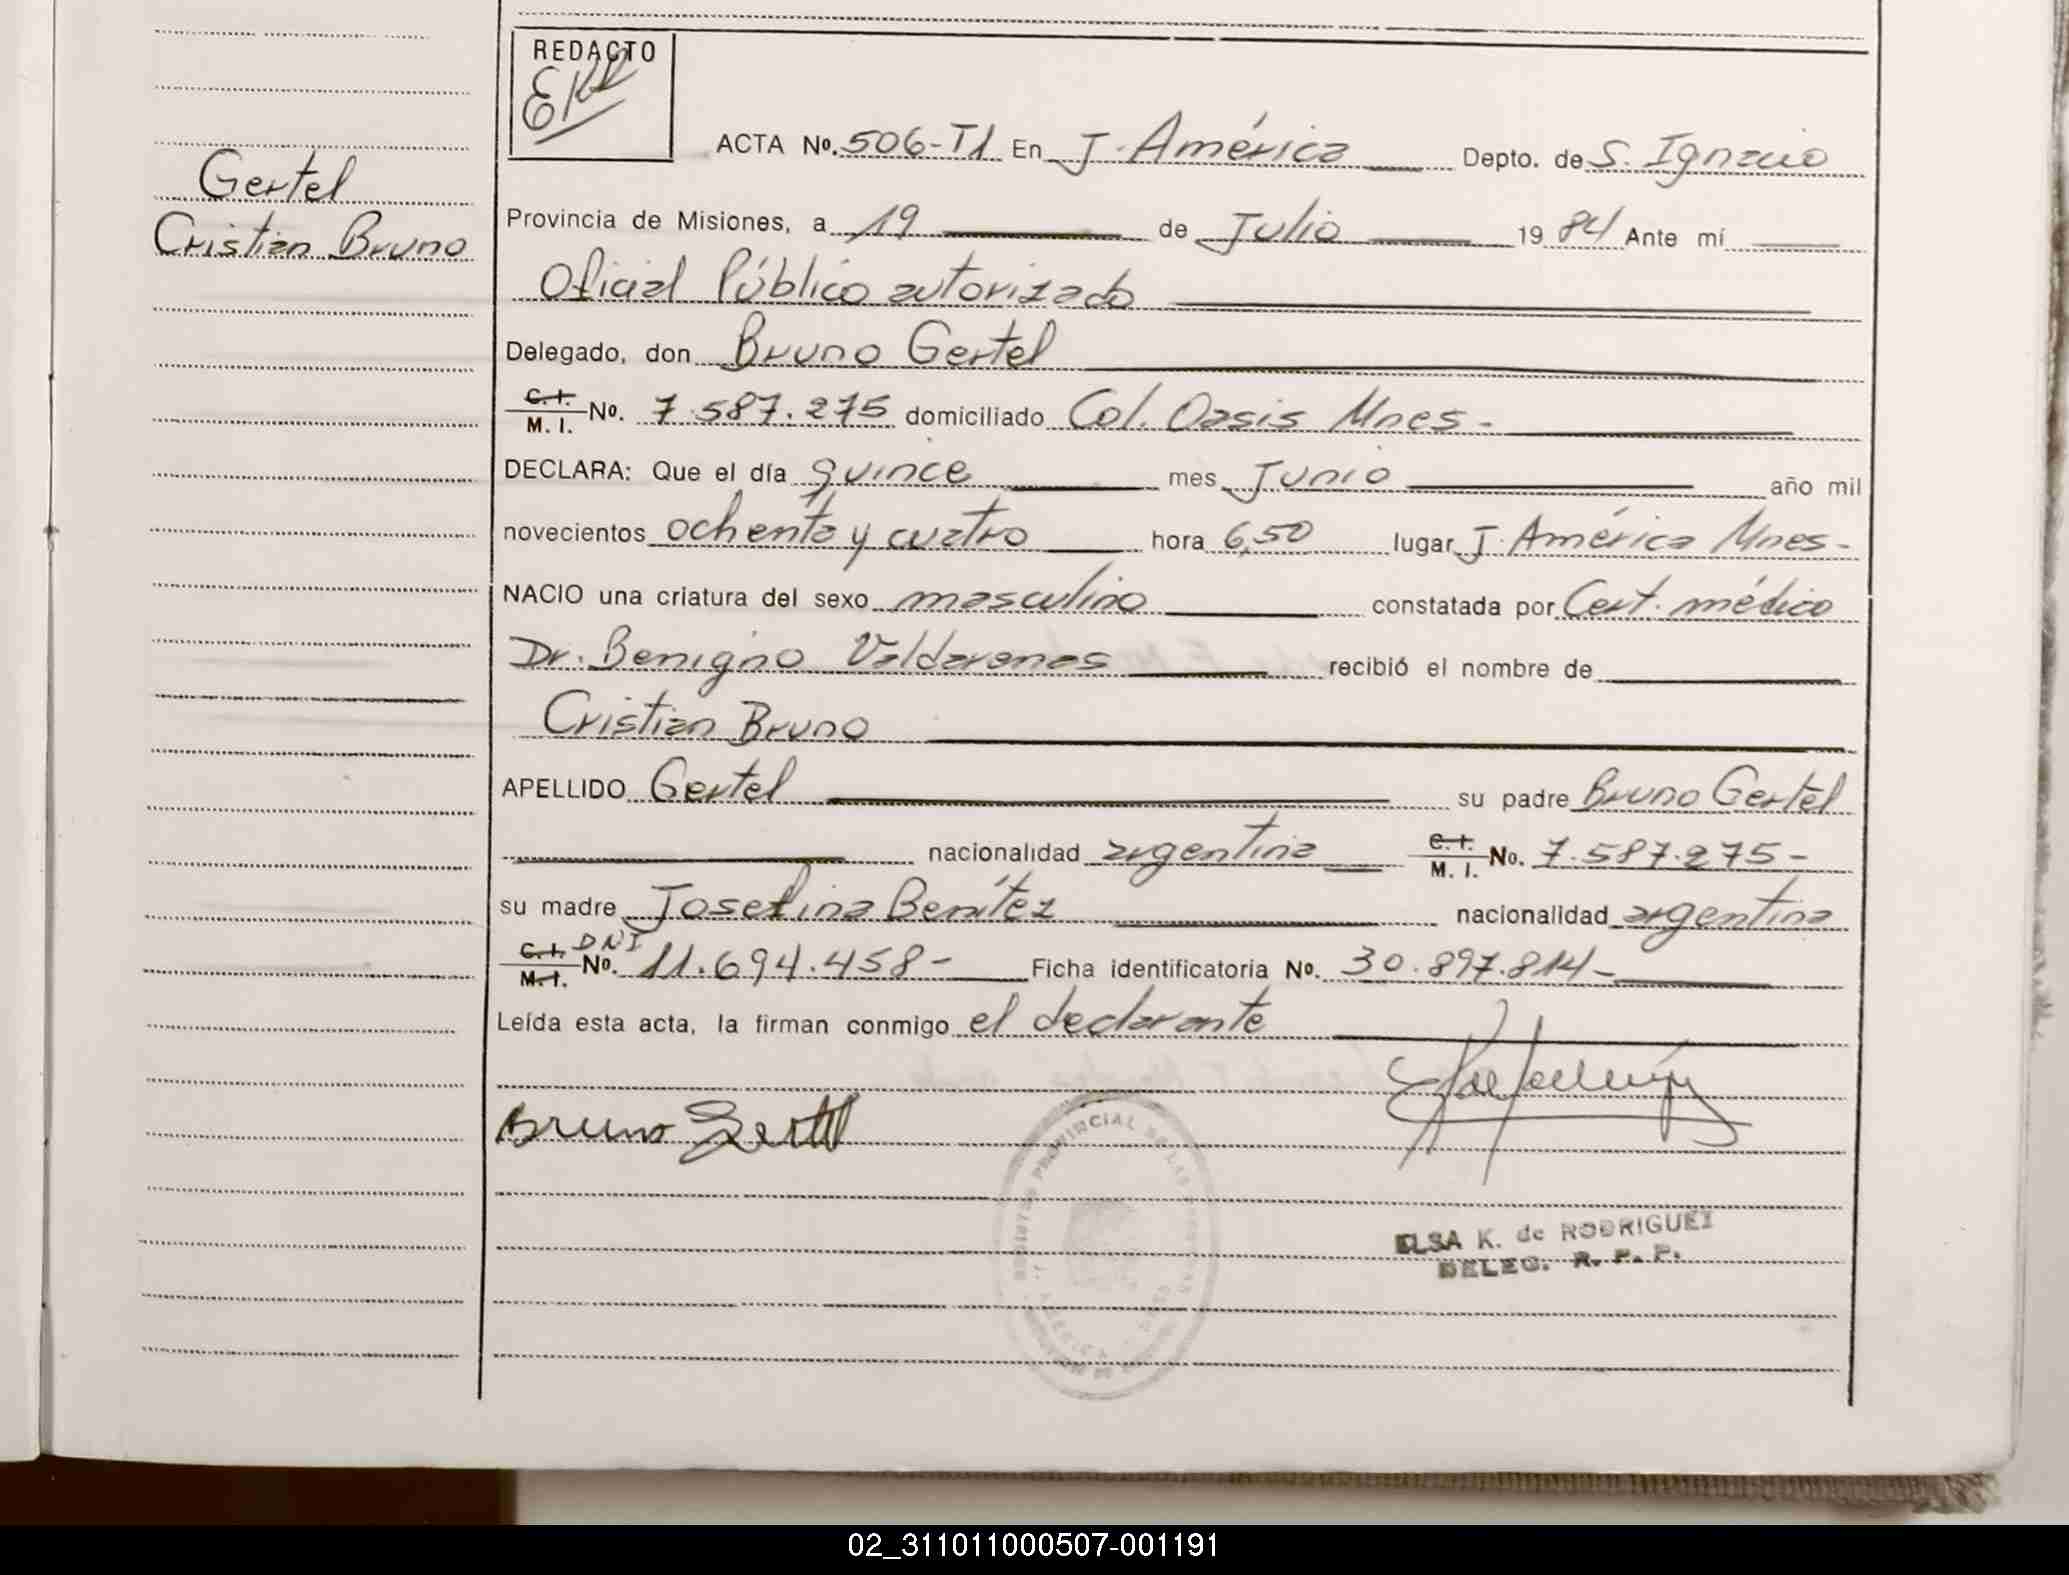 REDACTO
EKR
ACTA Nº. 506-T1 En J. América Depto. de S. Ignacio
Gertel
Cristian Bruno
Provincia de Misiones, a 19 de Julio 1984 Ante mí
Oficial Público autorizado
Delegado, don Bruno Gertel
C.I. M. I. Nº. 7.587.275 domiciliado Col. Oasis Mnes-
DECLARA: Que el día quince mes Junio año mil
novecientos ochenta y cuatro hora 6,50 lugar J. América Mnes-
NACIO una criatura del sexo masculino constatada por Cert. médico
Dr. Benigno Valdarenas recibió el nombre de
Cristian Bruno
APELLIDO Gertel su padre Bruno Gertel
nacionalidad argentina C.I. M. I. No. 7.587.275-
su madre Josefina Benítez nacionalidad argentina
C.I. M.I. DNI Nº. 11.694.458- Ficha identificatoria No. 30.897.814-
Leída esta acta, la firman conmigo el declarante
Bruno Gertel
PROVINCIAL DE LAS PERSONAS
ELSA K. de RODRIGUEZ
DELEG. R. P. P.
02_311011000507-001191